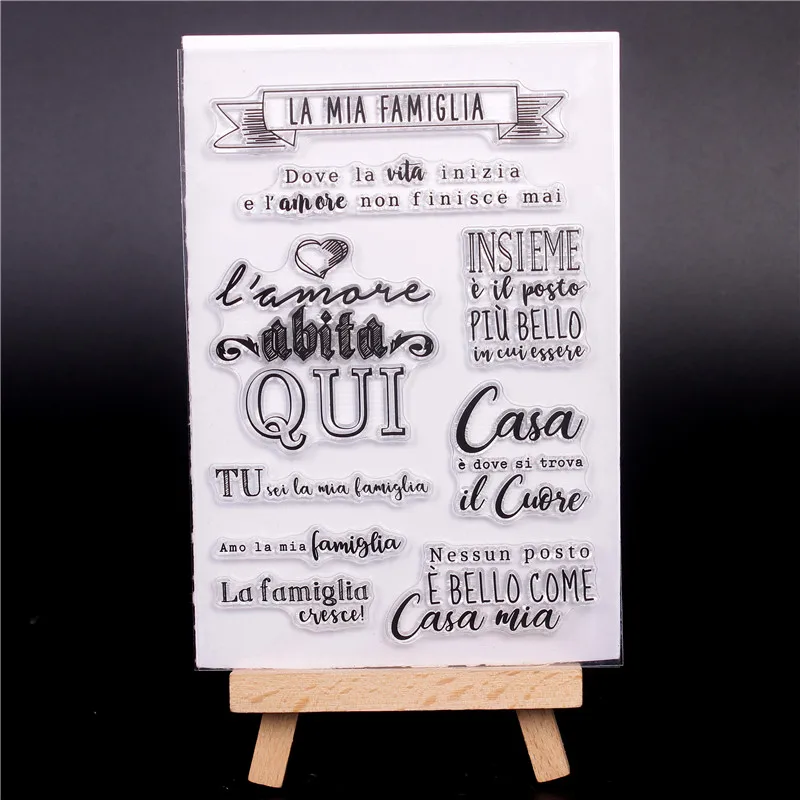 LA MIA FAMIGLIA
Dove la vita inizia
e l'amore non finisce mai
l'amore
abita
QUI
INSIEME
è il posto
PIÙ BELLO
in cui essere
Casa
è dove si trova
il Cuore
TU sei la mia famiglia
Amo la mia famiglia
La famiglia
cresce!
Nessun posto
È BELLO COME
Casa mia